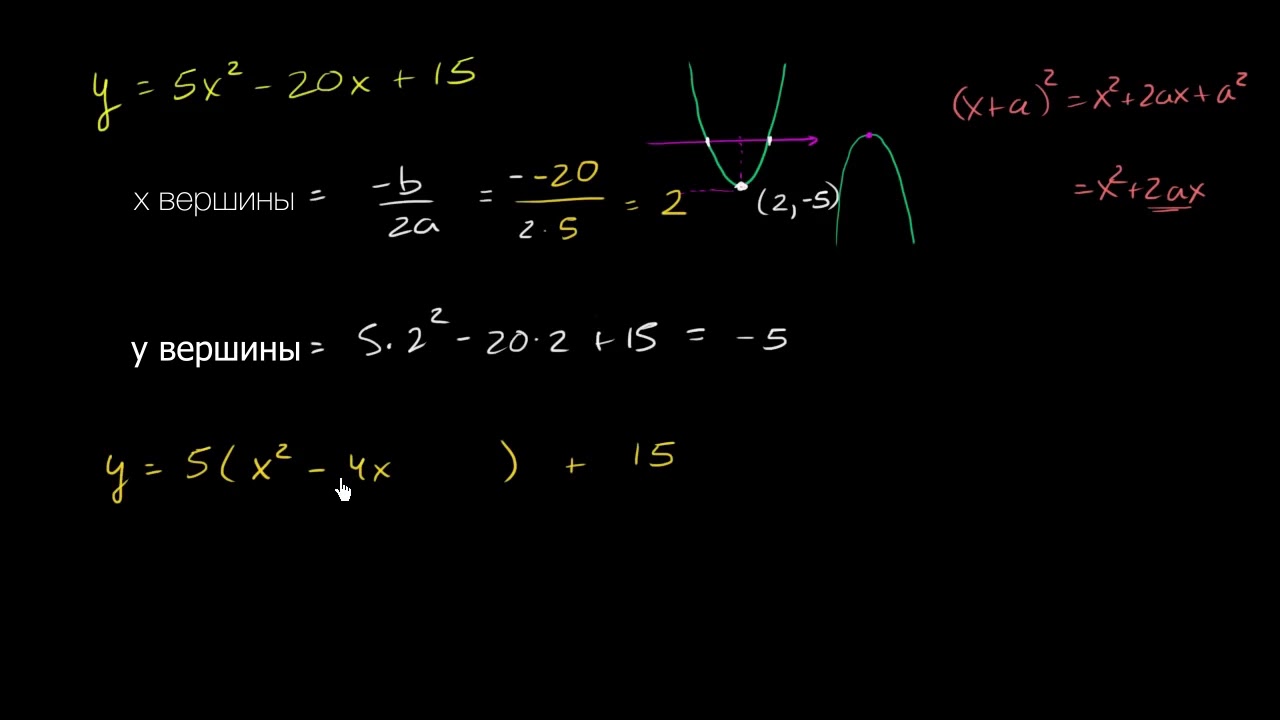 y = 5x² - 20x + 15
(x+a)² = x²+2ax+a²
x вершины = -b/2a = - -20/2·5 = 2
(2,-5)
= x²+2ax
y вершины = 5·2² - 20·2 + 15 = -5
y = 5(x² - 4x ) + 15